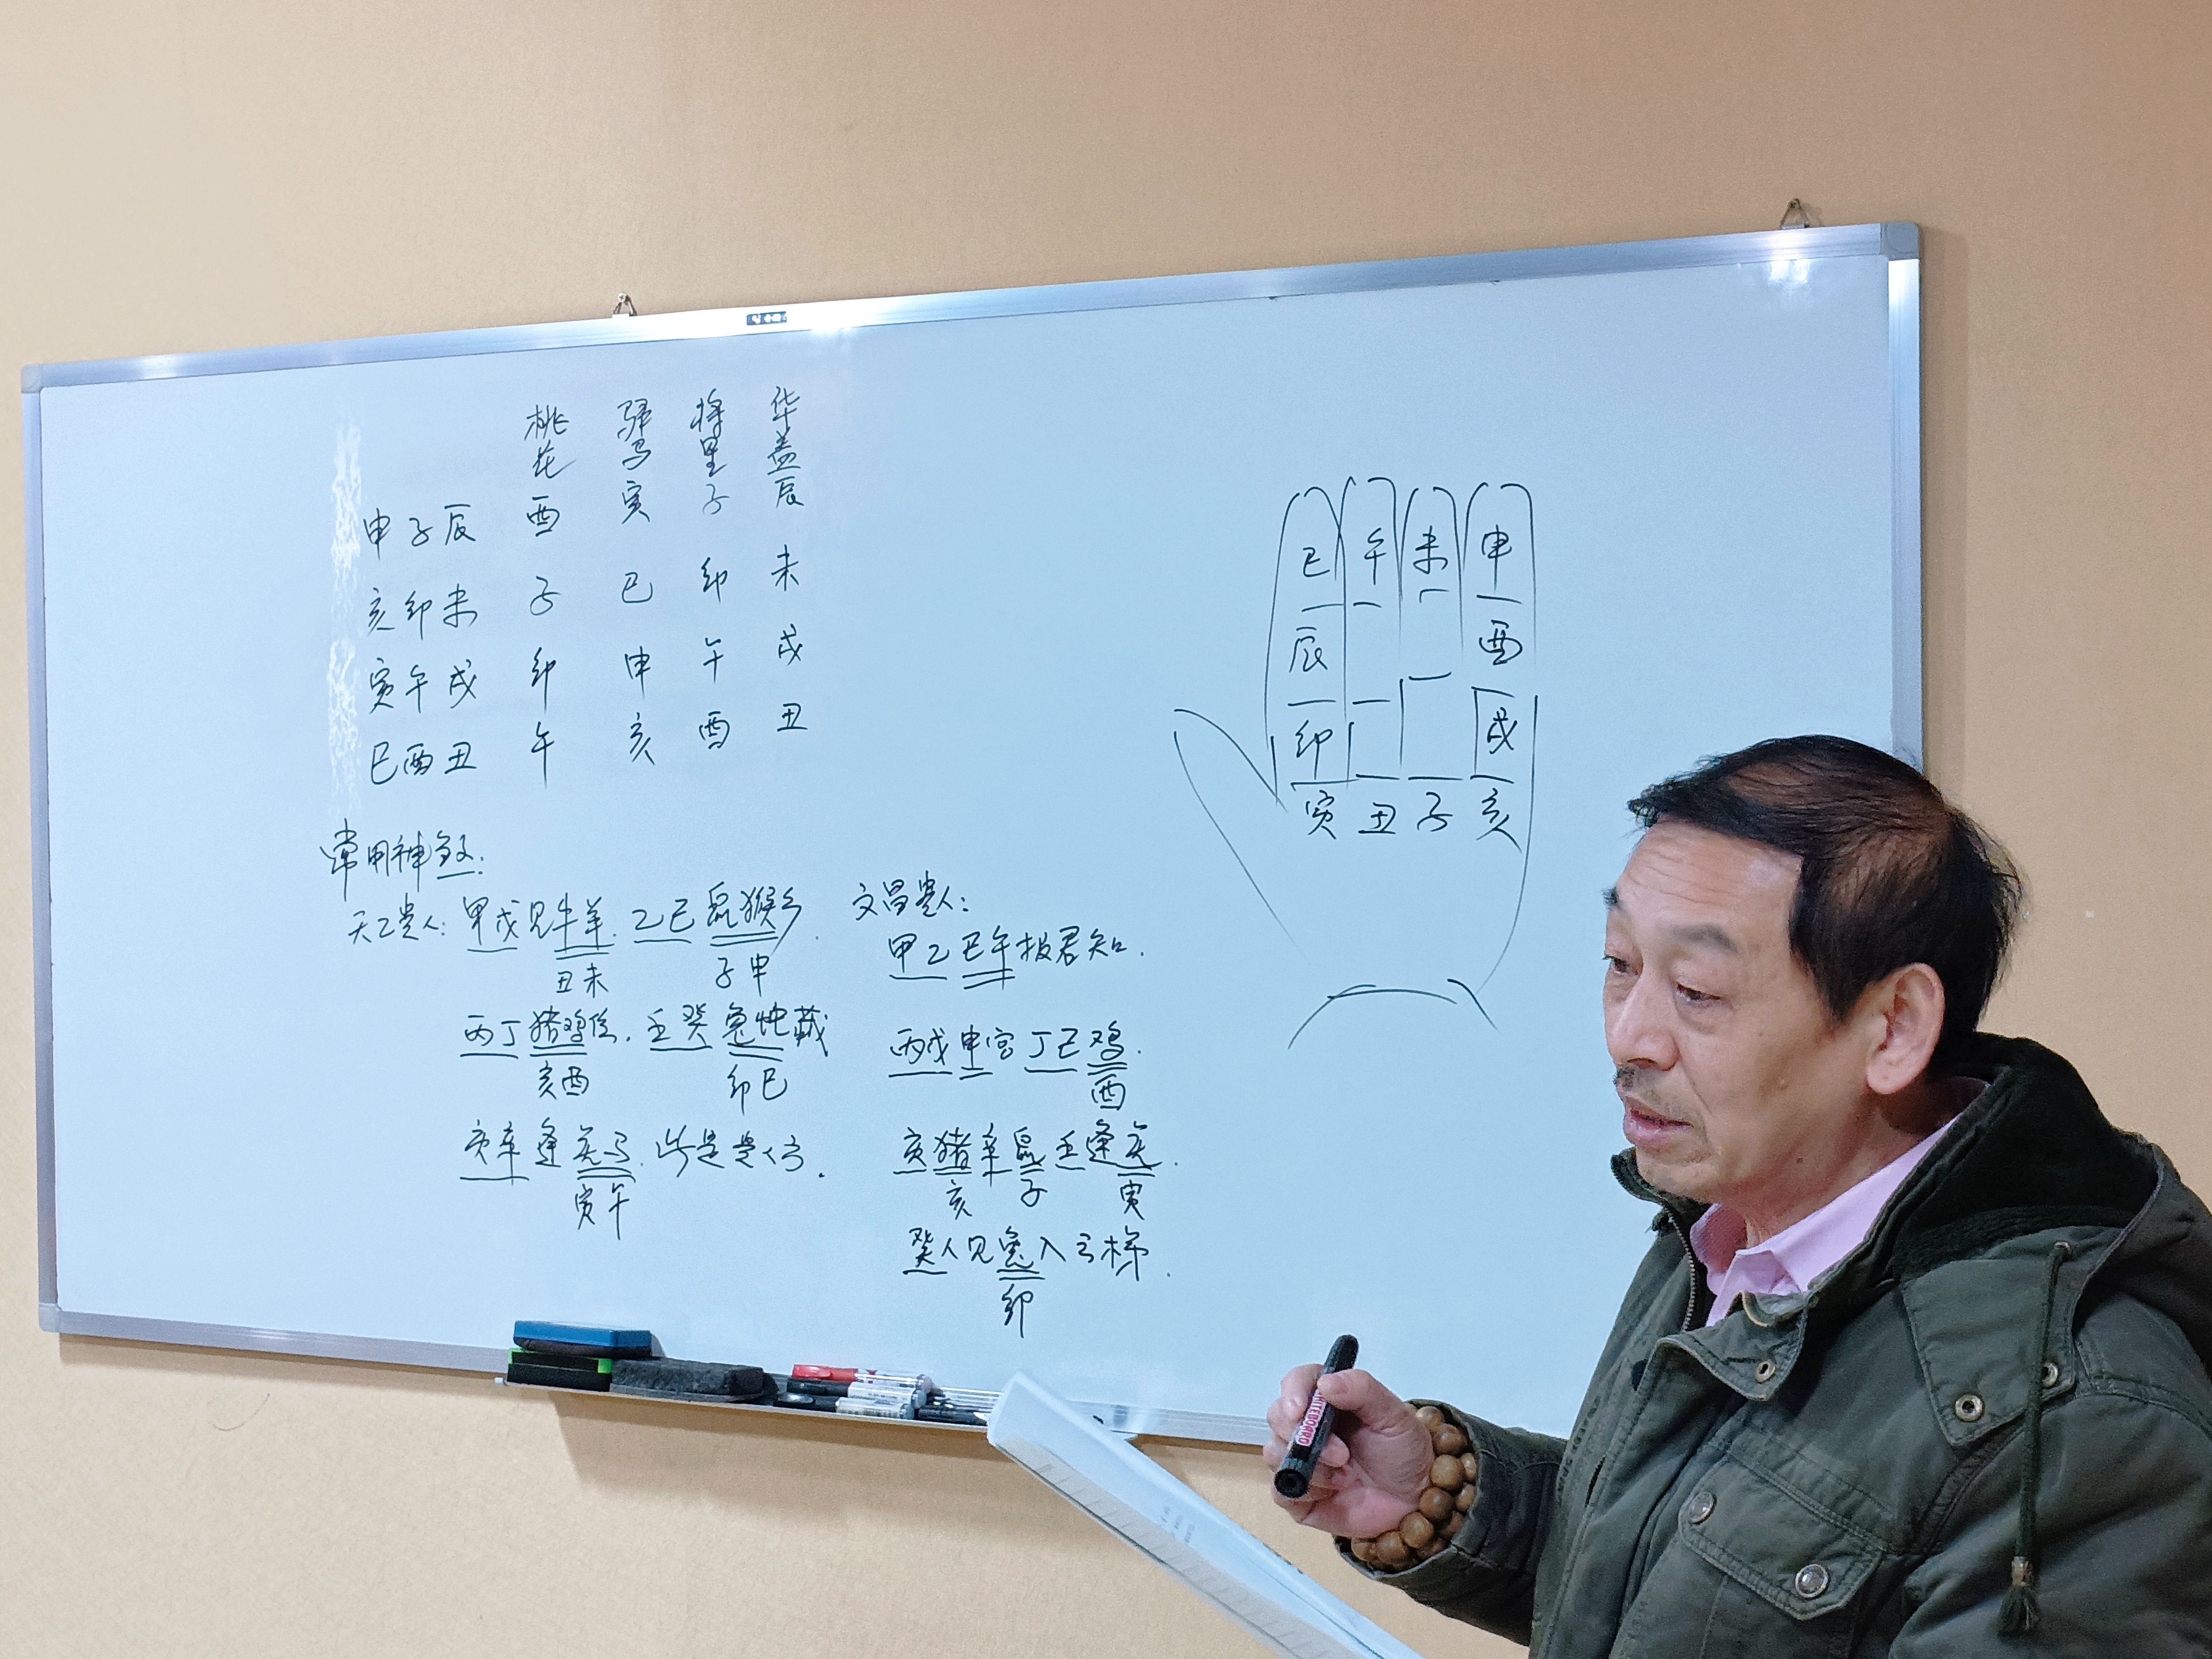 桃花 驿马 将星 华盖
申子辰 酉 寅 子 辰
亥卯未 子 巳 卯 未
寅午戌 卯 申 午 戌
巳酉丑 午 亥 酉 丑
常用神煞:
天乙贵人: 甲戊见牛羊. 乙己鼠猴乡.
丑未 子申
丙丁猪鸡位. 壬癸兔蛇藏
亥酉 卯巳
庚辛逢虎马. 此是贵人方.
寅午
文昌贵人:
甲乙巳午报君知.
丙戊申宫丁己鸡.
酉
庚猪辛鼠壬逢虎.
亥 子 寅
癸人见兔入云梯.
卯
巳 午 未 申
辰 酉
卯 戌
寅 丑 子 亥
WHITEBOARD